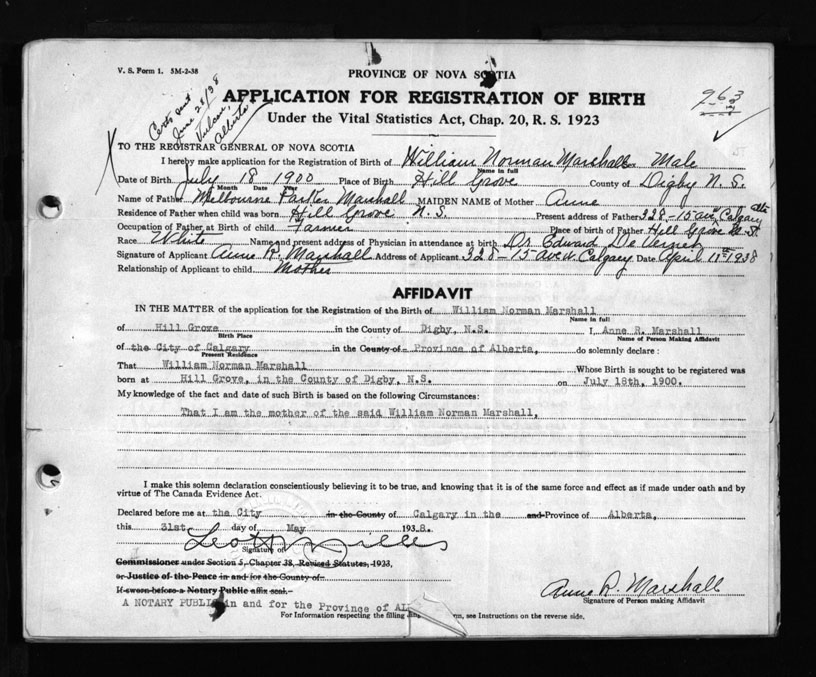 V. S. Form 1. 5M-2-38
PROVINCE OF NOVA SCOTIA
Certs and
June 28/38
Vulcan,
Alberta
963
APPLICATION FOR REGISTRATION OF BIRTH
Under the Vital Statistics Act, Chap. 20, R. S. 1923
TO THE REGISTRAR GENERAL OF NOVA SCOTIA
I hereby make application for the Registration of Birth of William Norman Marshall Sex Male
Name in full
Date of Birth July 18 1900 Place of Birth Hill Grove County of Digby N. S.
Month Date Year
Name of Father Melbourne Parker Marshall MAIDEN NAME of Mother Anne
Residence of Father when child was born Hill Grove N. S. Present address of Father 328-15 ave Calgary Alta
Occupation of Father at Birth of child Farmer Place of birth of Father Hill Grove N. S.
Race White Name and present address of Physician in attendance at birth Dr Edward
Signature of Applicant Anne R. Marshall Address of Applicant 328-15 ave W. Calgary Date April 11th 1938
Relationship of Applicant to child Mother
AFFIDAVIT
IN THE MATTER of the application for the Registration of the Birth of William Norman Marshall
Name in full
of Hill Grove in the County of Digby, N.S. I, Anne R. Marshall
Birth Place Name of Person Making Affidavit
of the City of Calgary in the County of Province of Alberta, do solemnly declare :
Present Residence
That William Norman Marshall Whose Birth is sought to be registered was
born at Hill Grove, in the County of Digby, N.S. on July 18th, 1900.
My knowledge of the fact and date of such Birth is based on the following Circumstances:
That I am the mother of the said William Norman Marshall,
I make this solemn declaration conscientiously believing it to be true, and knowing that it is of the same force and effect as if made under oath and by
virtue of The Canada Evidence Act.
Declared before me at the City in the County of Calgary in the and Province of Alberta,
this 31st day of May 1938.
Signature of
Commissioner under Section 5, Chapter 38, Revised Statutes, 1923,
or Justice of the Peace in and for the County of
If sworn before a Notary Public affix seal.
Anne R. Marshall
Signature of Person making Affidavit
A NOTARY PUBLIC in and for the Province of AL
For Information respecting the filling rm, see Instructions on the reverse side.